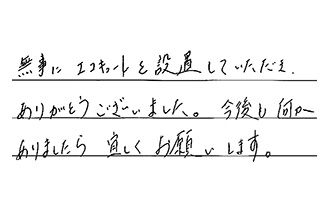 無事に エコキュートを設置していただき、
ありがとうございました。 今後も何か
ありましたら 宜しく お願いします。